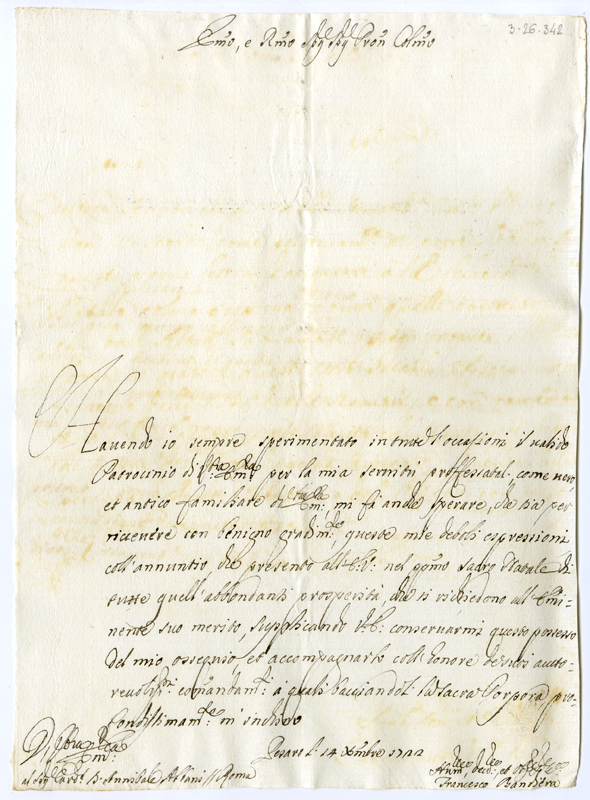 3-26.342
Emo, e Rmo Sig Sig Pron Colmo
Hauendo io sempre sperimentato in tutte l'occasioni il ualido
Patrocinio di Vra Emza per la mia seruitù proffessatal, come uero,
et antico familiare di Vra Em:, mi fà anche sperare, che sia per
riceuere con benigno gradim:to queste mie deboli espressioni
coll'annuntio, che presento all'E:V: nel ppmo sacro Natale di
tutte quell'abbondanti prosperità, che si richiedono all'Emi-
nente suo merito, supplicando V:E: conseruarmi questo possesso
del mio ossequio et accompagnarlo coll'honore de suoi auto-
reuolissi: comandam:ti à quali bacciandole la Sacra Porpora pro-
fondissimam:te m'inchino
D. Vra Emza
Pesaro li 14 Xmbre 1722
al Sig Card: Annibale Albani // Roma
Humo, deuo: et
Francesco Bandiera